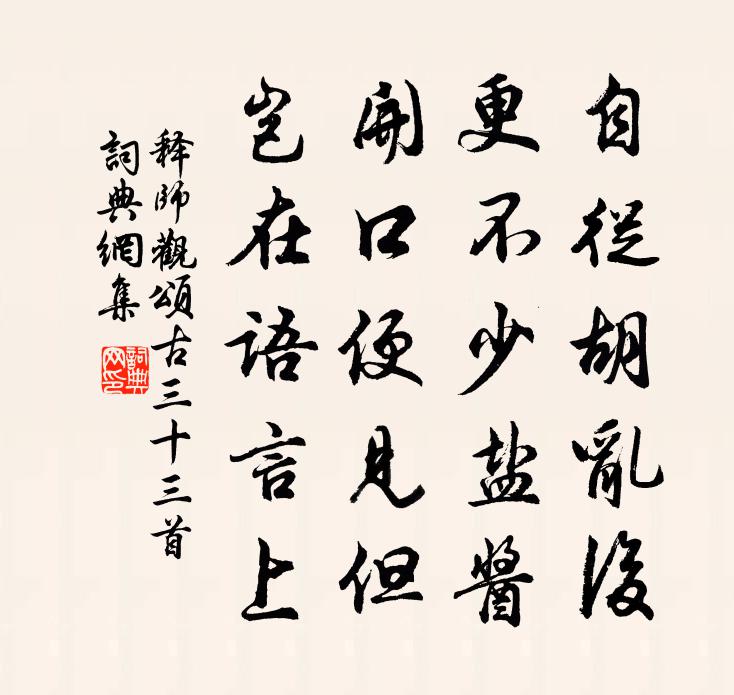 自從胡亂後
更不少盐醬
開口便見但
岂在語言上
释師觀頌古三十三首
詞典網集
詞典网印